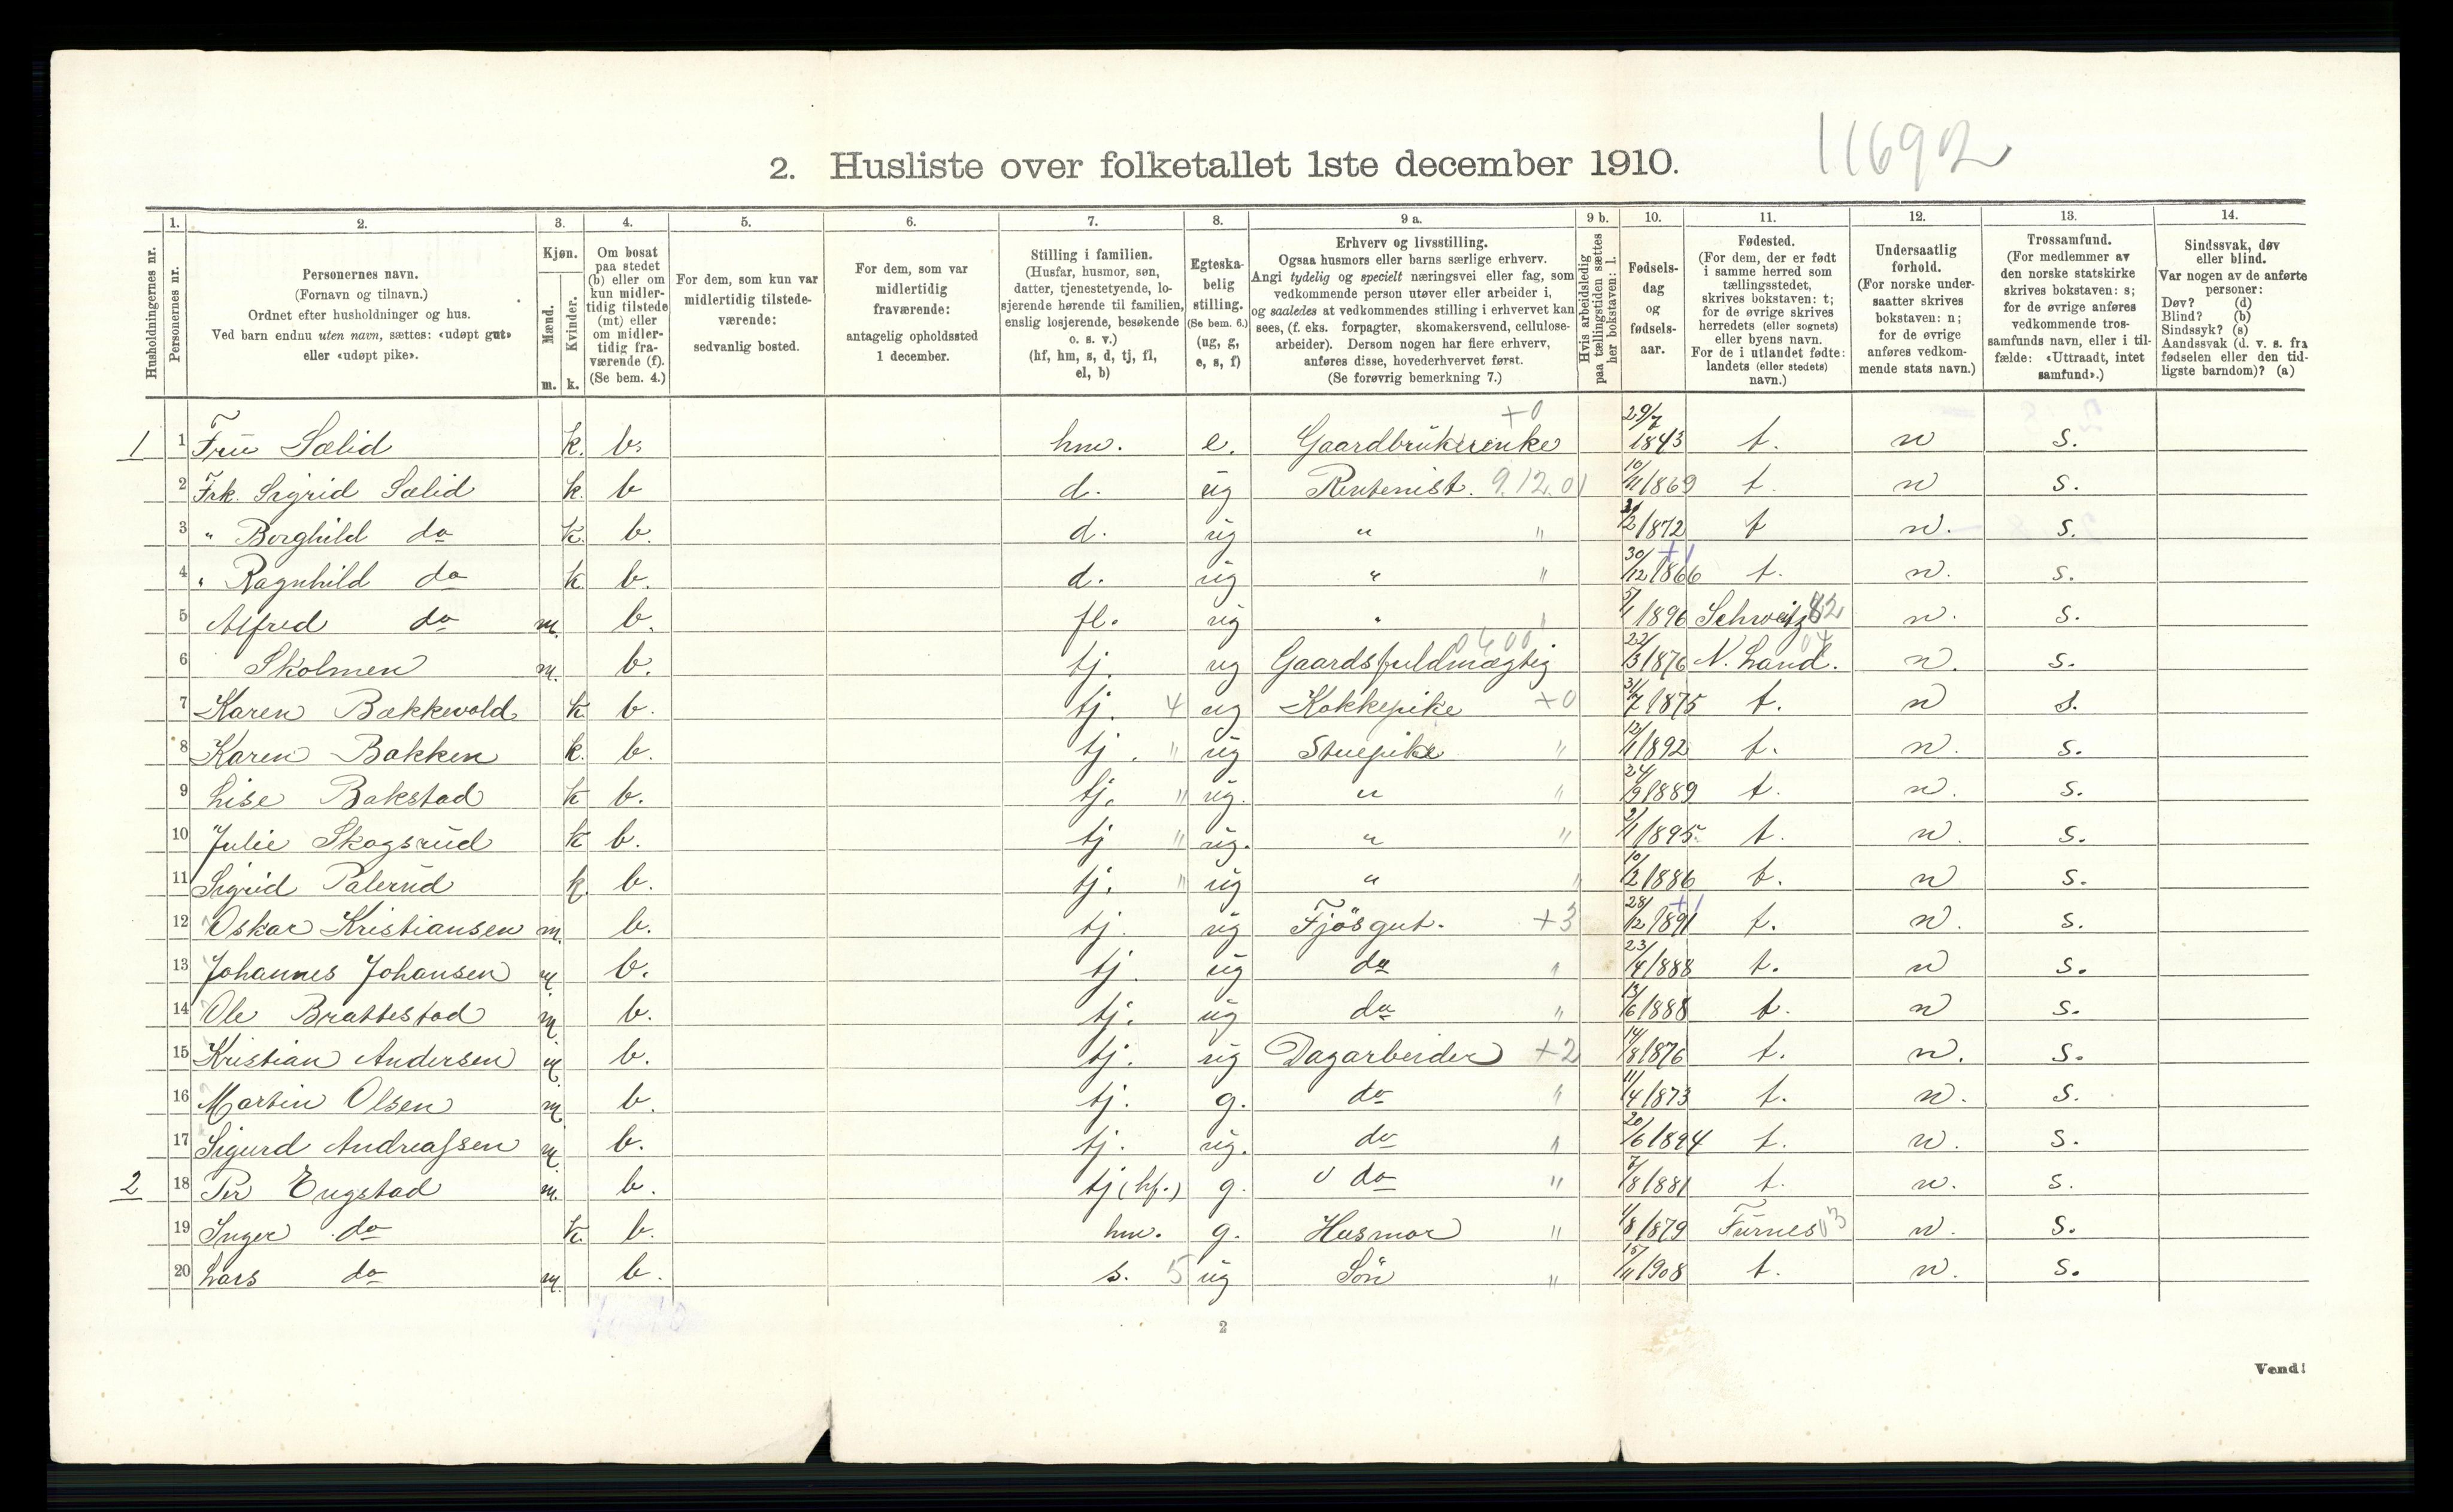 11692
2. Husliste over folketallet 1ste december 1910.
1. 2. 3. 4. 5. 6. 7. 8. 9 a. 9 b. 10. 11. 12. 13. 14.
Husholdningernes nr.
Personernes nr.
Personernes navn.
(Fornavn og tilnavn.)
Ordnet efter husholdninger og hus.
Ved barn endnu uten navn, sættes: «udøpt gut»
eller «udøpt pike».
Kjøn.
Mænd.
Kvinder.
m. k.
Om bosat
paa stedet
(b) eller om
kun midler-
tidig tilstede
(mt) eller
om midler-
tidig fra-
værende (f).
(Se bem. 4.)
For dem, som kun var
midlertidig tilstede-
værende:
sedvanlig bosted.
For dem, som var
midlertidig
fraværende:
antagelig opholdssted
1 december.
Stilling i familien.
(Husfar, husmor, søn,
datter, tjenestetyende, lo-
sjerende hørende til familien,
enslig losjerende, besøkende
o. s. v.)
(hf, hm, s, d, tj, fl,
el, b)
Egteska-
belig
stilling.
(Se bem. 6.)
(ug, g,
e, s, f)
Erhverv og livsstilling.
Ogsaa husmors eller barns særlige erhverv.
Angi tydelig og specielt næringsvei eller fag, som
vedkommende person utøver eller arbeider i,
og saaledes at vedkommendes stilling i erhvervet kan
sees, (f. eks. forpagter, skomakersvend, cellulose-
arbeider). Dersom nogen har flere erhverv,
anføres disse, hovederhvervet først.
(Se forøvrig bemerkning 7.)
Hvis arbeidsledig
paa tællingstiden sættes
her bokstaven: l.
Fødsels-
dag
og
fødsels-
aar.
Fødested.
(For dem, der er født
i samme herred som
tællingsstedet,
skrives bokstaven: t;
for de øvrige skrives
herredets (eller sognets)
eller byens navn.
For de i utlandet fødte:
landets (eller stedets)
navn.)
Undersaatlig
forhold.
(For norske under-
saatter skrives
bokstaven: n;
for de øvrige
anføres vedkom-
mende stats navn.)
Trossamfund.
(For medlemmer av
den norske statskirke
skrives bokstaven: s;
for de øvrige anføres
vedkommende tros-
samfunds navn, eller i til-
fælde: «Uttraadt, intet
samfund».)
Sindssvak, døv
eller blind.
Var nogen av de anførte
personer:
Døv? (d)
Blind? (b)
Sindssyk? (s)
Aandssvak (d. v. s. fra
fødselen eller den tid-
ligste barndom)? (a)
1 1 Fru Sælid k. b. hm. e. Gaardbrukerenke +0 29/7 1843 t. n s.
2 Frk. Sigrid Sælid k. b d. ug Rentenist. 9.12.01 10/11 1869 t. n s.
3 " Borghild do k. b. d. ug " " /2 1872 t n. s.
4 " Ragnhild do k. b. d. ug " " 30/12 1866 +1 t. n. s.
5 Alfred do m. b. fl. ug " " 5/1 1896 Schweitz 82 n. s.
6 Skolmen m. b. tj. ug Gaardsfuldmægtig 0400 22/3 1876 N. Land. 04 n. s.
7 Karen Bækkevold k. b. tj. 4 ug Kokkepike +0 31/7 1875 t. n s.
8 Karen Bakken k. b. tj. " ug Stuepike " 12/1 1892 t. n. s.
9 Lise Bakstad k b. tj. " ug. " " 24/9 1889 t. n. s.
10 Julie Skogsrud k b. tj " ug. " " 2/1 1895. t. n. s.
11 Sigrid Palerud k. b. tj. " ug " " 10/2 1886 t. n s.
12 Oskar Kristiansen m. b. tj. ug Fjøsgut. +3 28/12 1891 +1 t. n. s.
13 Johannes Johansen m b. tj. ug do " 23/4 1888 t. n s.
14 Ole Brattestad m b. tj. ug do " 13/6 1888 t. n s.
15 Kristian Andersen m b. tj. ug Dagarbeider +2 14/8 1876 t. n. s.
16 Martin Olsen m b. tj. g. do " 11/4 1873 t. n. s.
17 Sigurd Andreassen m b. tj. ug. do " 20/6 1894 t. n. s.
2 18 Per Engstad m. b. tj (hf.) g. do " 7/8 1881 t. n. s.
19 Inger do k. b. hm. g. Husmor " 1/8 1879 Furnes 03 n. s.
20 Lars do m. b. s. 5 ug Søn " 15/11 1908 t. n. s.
2
Vend!